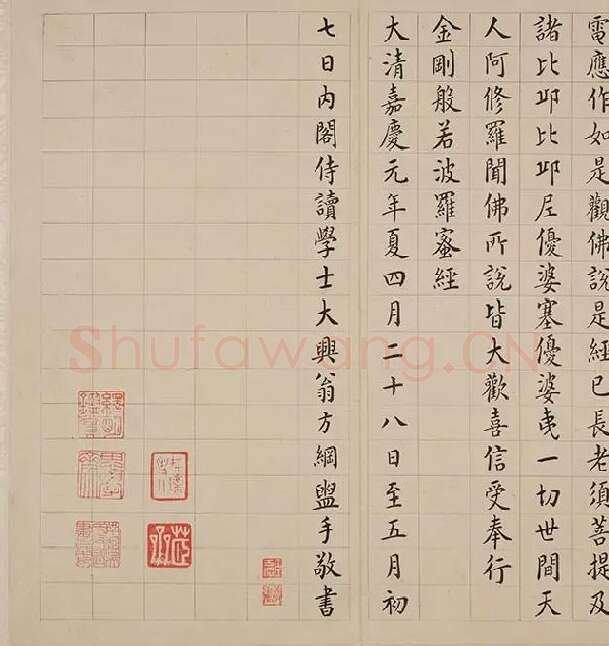 雷應作如是觀佛說是經已長老須菩提及
諸比邱比邱尼優婆塞優婆夷一切世間天
人阿修羅聞佛所說皆大歡喜信受奉行
金剛般若波羅蜜經
大清嘉慶元年夏四月二十八日至五月初
七日內閣侍讀學士大興翁方綱盥手敬書
Shufawang.CN